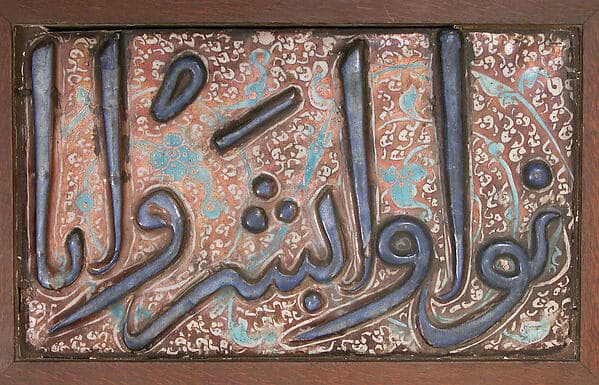 نوا وابشروا با